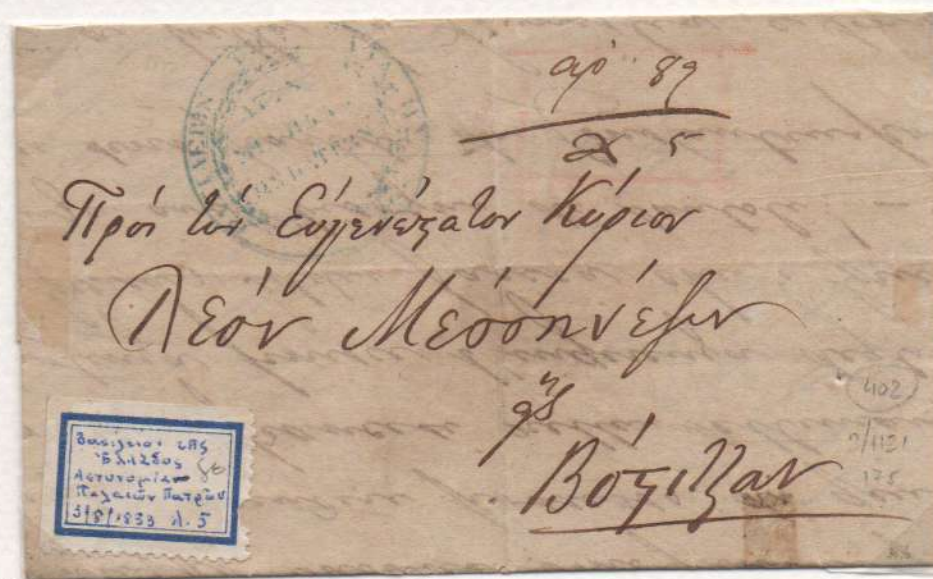 αρ. 89
λ 5
Πρὸς τὸν Εὐγενέςατον Κύριον
Λεόν Μεσσηνέζην
εἰς
Βόςιτζαν
Βασίλειον της
Ἑλλάδος
Αστυνομία
Παλαιῶν Πατρῶν
3/8/1833 λ. 5
80
402
175